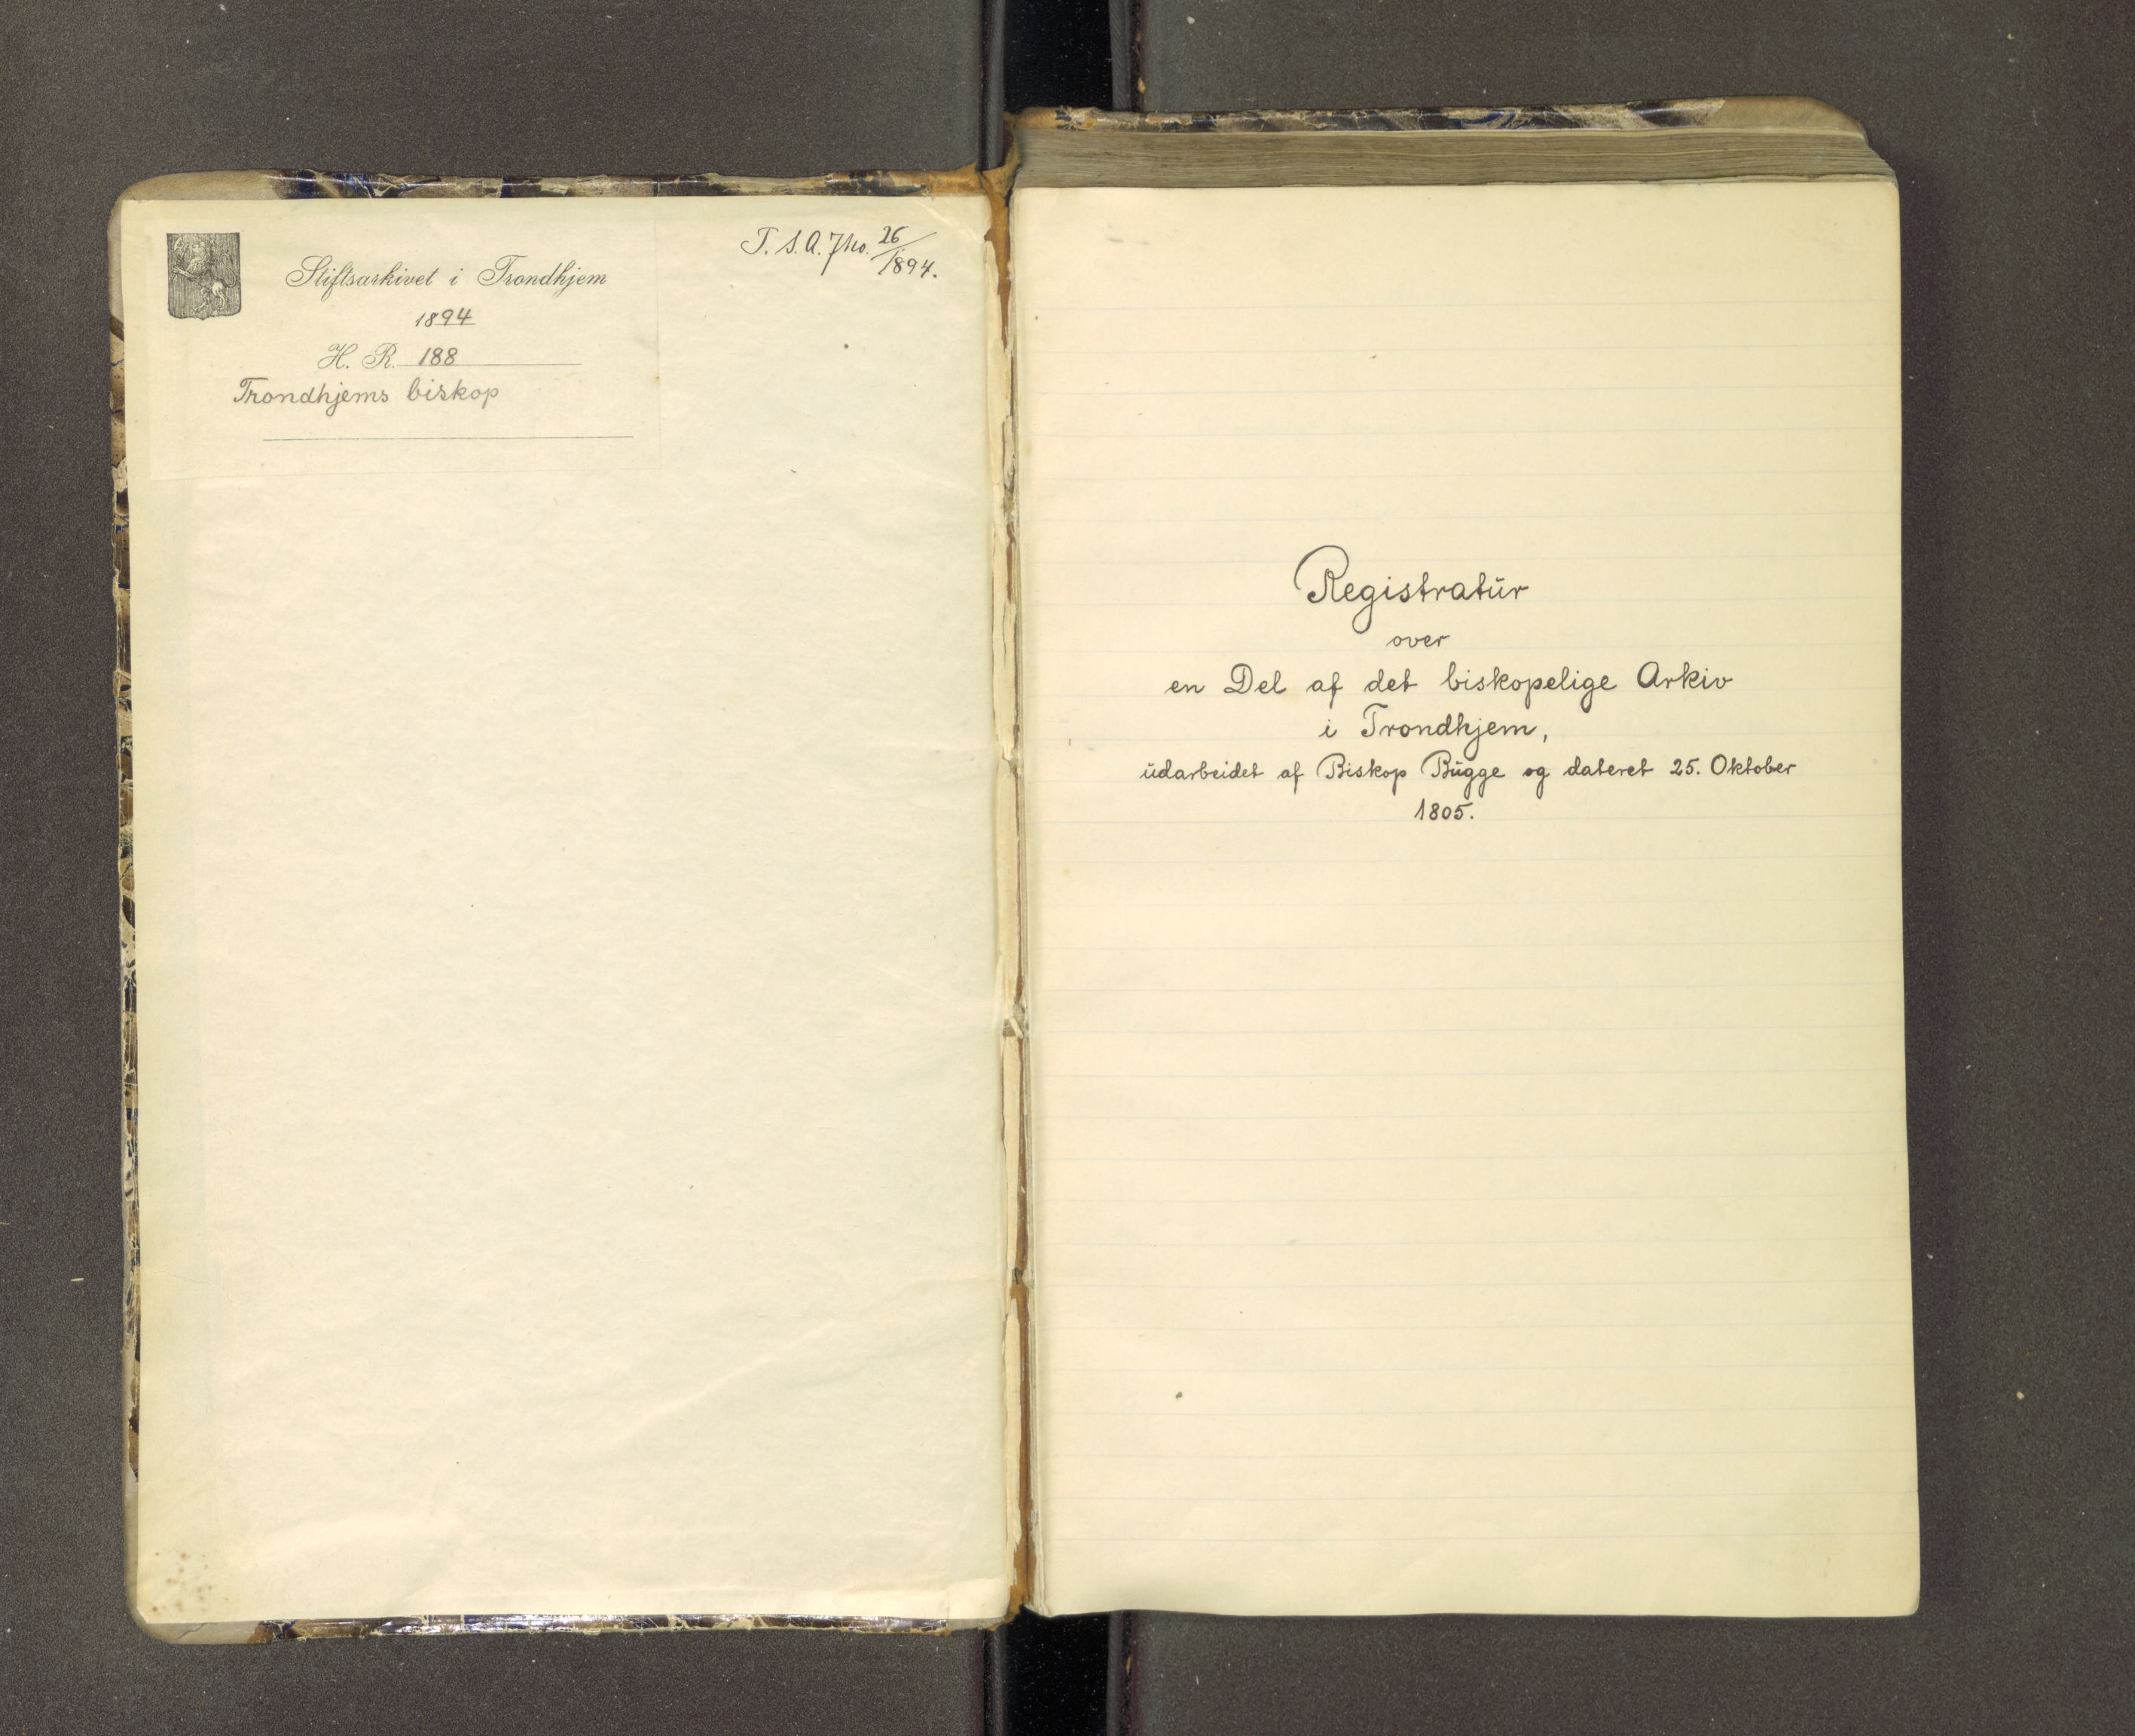 Stiftsarkivet i Trondhjem
1894
H. R. 188
Trondhjems biskop
T. S. A. Jno. 26/1894.
Registratur
over
en Del af det biskopelige Arkiv
i Trondhjem,
udarbeidet af Biskop Bugge og dateret 25. Oktober
1805.